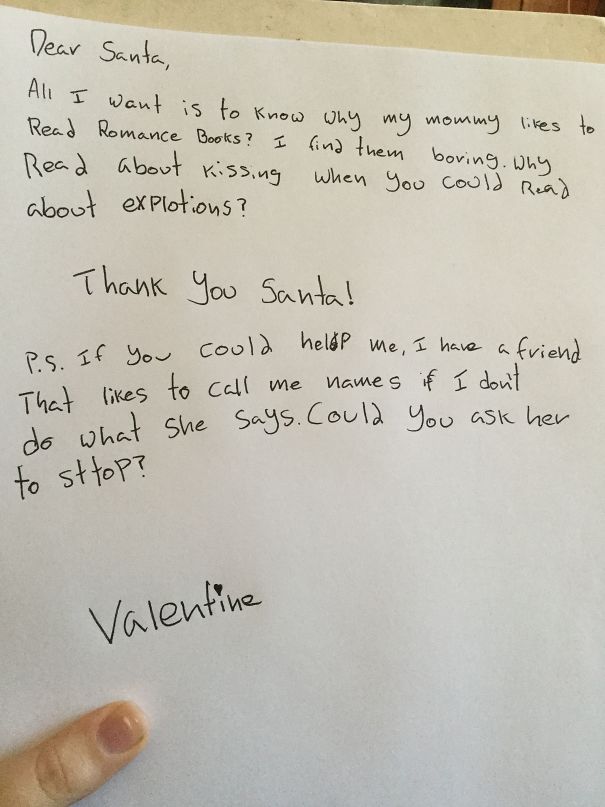 Dear Santa,
All I want is to know why my mommy likes to
Read Romance Books? I find them boring. Why
Read about kissing when you could Read
about explotions?
Thank you Santa!
P.S. If you could help me, I have a friend
That likes to call me names if I don't
do what she says. Could you ask her
to sttop?
Valentine